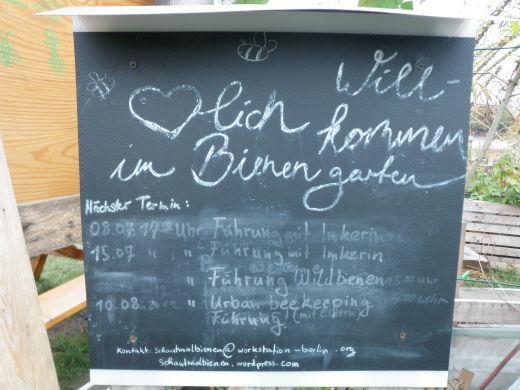 ♡lich Will-
kommen
im Bienengarten
Nächster Termin:
08.07 17 Uhr Führung mit Imkerin
15.07 " " Führung mit Imkerin
Führung Wildbienen Uhr
10.08. Urban beekeeping Uhr
Führung (mit Eltern)
Kontakt: schautmalbienen@workstation-berlin.org
schautmalbienen.wordpress.com